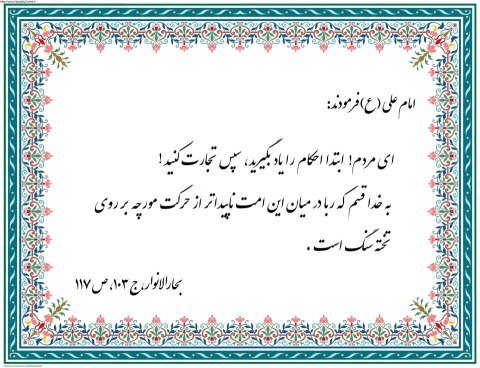 امام علی (ع) فرمودند:
ای مردم! ابتدا احکام را یاد بگیرید، سپس تجارت کنید!
به خدا قسم که ربا در میان این امت ناپیداتر از حرکت مورچه بر روی
تخته سنگ است .
بحارالانوار، ج ۱۰۳، ص ۱۱۷